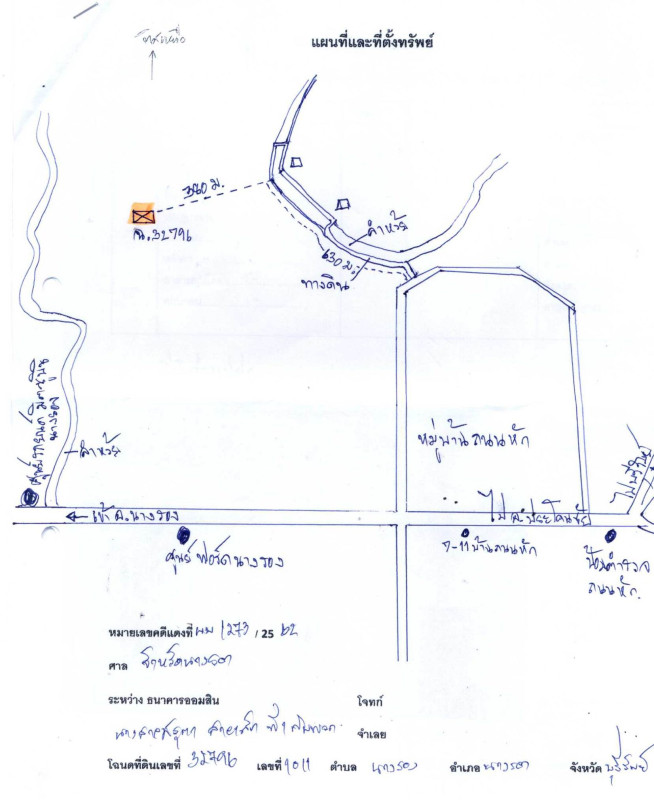 แผนที่และที่ตั้งทรัพย์
ทิศเหนือ
380 ม.
ฉ.32796
ลำห้วย
630 ม.
ทางดิน
ศูนย์รถยนต์มิตซูบิชิ
นางรอง
ลำห้วย
หมู่บ้านถนนหัก
ไปบุรีรัมย์
← เข้า อ.นางรอง
ไป อ.ประโคนชัย
ศูนย์ ฟอร์ดนางรอง
7-11 บ้านถนนหัก
ป้อมตำรวจ
ถนนหัก.
หมายเลขคดีแดงที่ ผบ 1273 / 25 62
ศาล จังหวัดนางรอง
ระหว่าง ธนาคารออมสิน โจทก์
จำเลย
โฉนดที่ดินเลขที่ 32796 เลขที่ 1011 ตำบล นางรอง อำเภอ นางรอง จังหวัด บุรีรัมย์